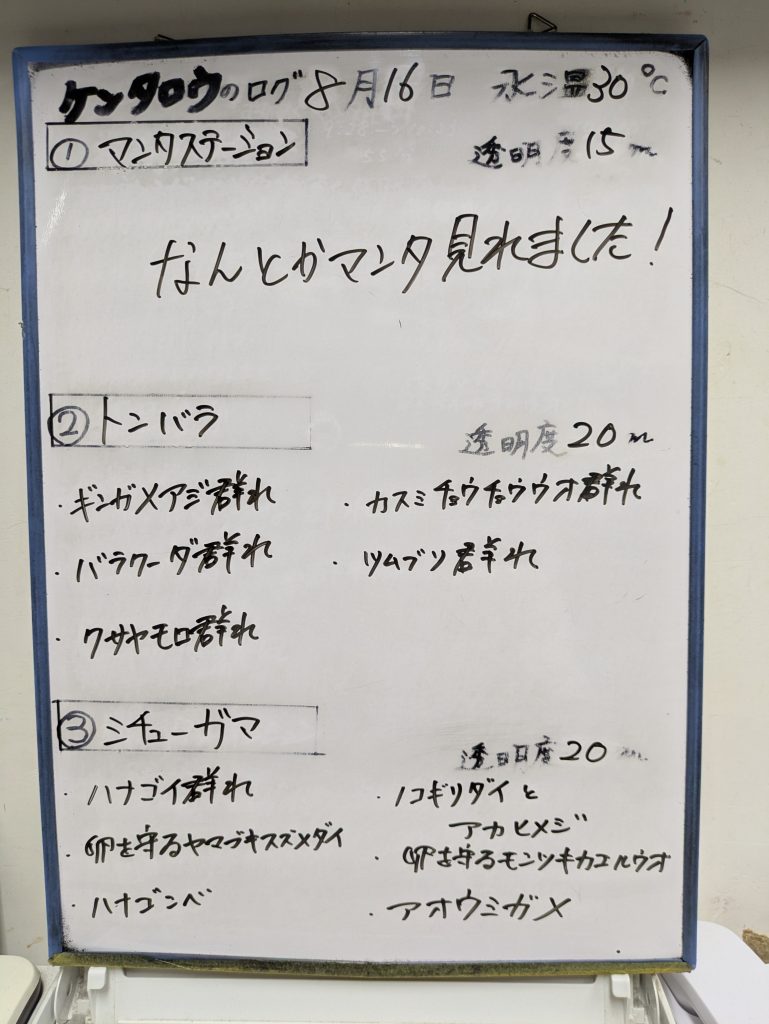 ケンタロウのログ 8月16日 水温30℃
① マンタステーション 透明度15m
なんとかマンタ見れました!
② トンバラ 透明度20m
・ギンガメアジ群れ ・カスミチョウチョウウオ群れ
・バラクーダ群れ ・ツムブリ群れ
・クサヤモロ群れ
③ ミチューガマ 透明度20m
・ハナゴイ群れ ・ノコギリダイと
アカヒメジ
・卵を守るヤマブキスズメダイ ・卵を守るモンツキカエルウオ
・ハナゴンベ ・アオウミガメ